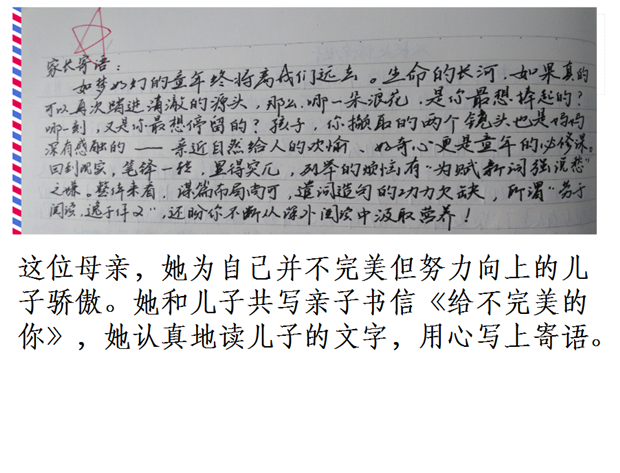 家长寄语：
如梦如幻的童年终将离我们远去。生命的长河，如果真的
可以再次踏进清澈的源头，那么，哪一朵浪花，是你最想捧起的？
哪一刻，又是你最想停留的？孩子，你撷取的两个镜头也是妈妈
深有感触的——亲近自然给人的欢愉、好奇心更是童年的必修课。
回到现实，笔锋一转，显得突兀，列举的烦恼有“为赋新词强说愁”
之嫌。整体来看，谋篇布局尚可，遣词造句的功力欠缺，所谓“劳于
阅读，逸于作文”，还盼你不断从课外阅读中汲取营养！
这位母亲，她为自己并不完美但努力向上的儿
子骄傲。她和儿子共写亲子书信《给不完美的
你》，她认真地读儿子的文字，用心写上寄语。